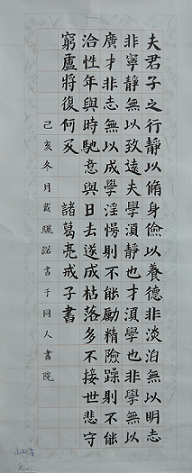 夫君子之行靜以脩身儉以養德非淡泊無以明志
非寧靜無以致遠夫學須靜也才須學也非學無以
廣才非志無以成學淫慢則不能勵精險躁則不能
治性年與時馳意與日去遂成枯落多不接世悲守
窮廬將復何及 諸葛亮戒子書
己亥冬月戴驪諾書于同人書院